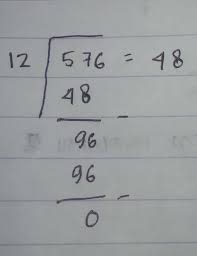 12 576 = 48
48 -
96
96 -
0